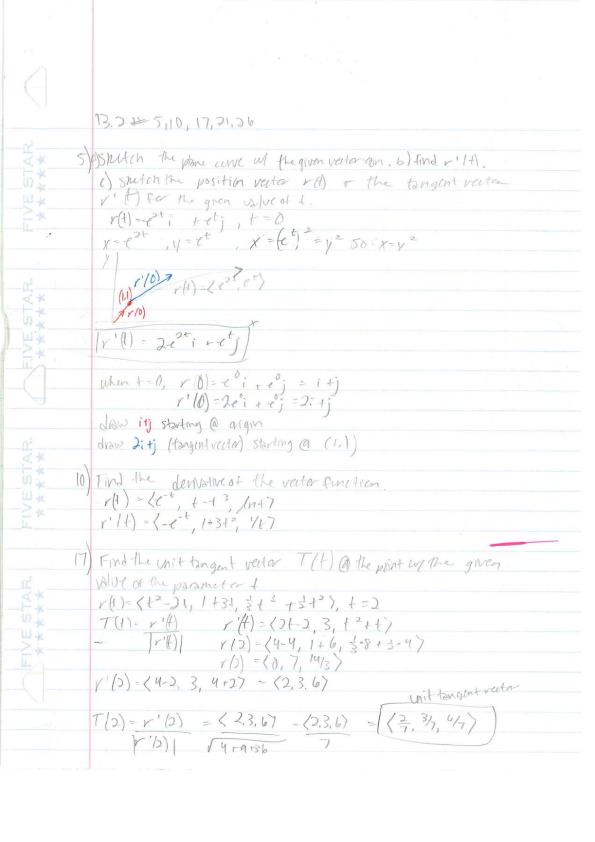 13.2 # 5,10,17,21,26
5) a) Sketch the plane curve w/ the given vector eqn. b) find r'(t).
c) Sketch the position vector r(t) + the tangent vector
r'(t) for the given value of t.
r(t)=e^2t i + e^t j, t=0
x=e^2t, y=e^t, x=(e^t)^2=y^2 so x=y^2
y
r'(0)
(1,1)
r(t)=<e^2t, e^t>
r(0)
x
r'(t) = 2e^2t i + e^t j
when t=0, r(0)=e^0 i + e^0 j = i+j
r'(0)=2e^0 i + e^0 j =2i+j
draw i+j starting @ origin
draw 2i+j (tangent vector) starting @ (1,1)
10) Find the derivative of the vector function.
r(t)=<e^-t, t-t^3, ln t>
r'(t)=<-e^-t, 1+3t^2, 1/t>
17) Find the unit tangent vector T(t) @ the point w/ the given
value of the parameter t
r(t)=<t^2-2t, 1+3t, 1/3 t^3 + 1/2 t^2>, t=2
T(t)= r'(t) / |r'(t)| r'(t)=<2t-2, 3, t^2+t>
r(2)=<4-4, 1+6, 1/3·8+1/2·4>
r(2)=<0, 7, 14/3>
r'(2)=<4-2, 3, 4+2> = <2,3,6>
unit tangent vector
T(2)= r'(2) / |r'(2)| = <2,3,6> / √4+9+36 = <2,3,6> / 7 = <2/7, 3/7, 6/7>
FIVE STAR.
FIVE STAR.
FIVE STAR.
FIVE STAR.